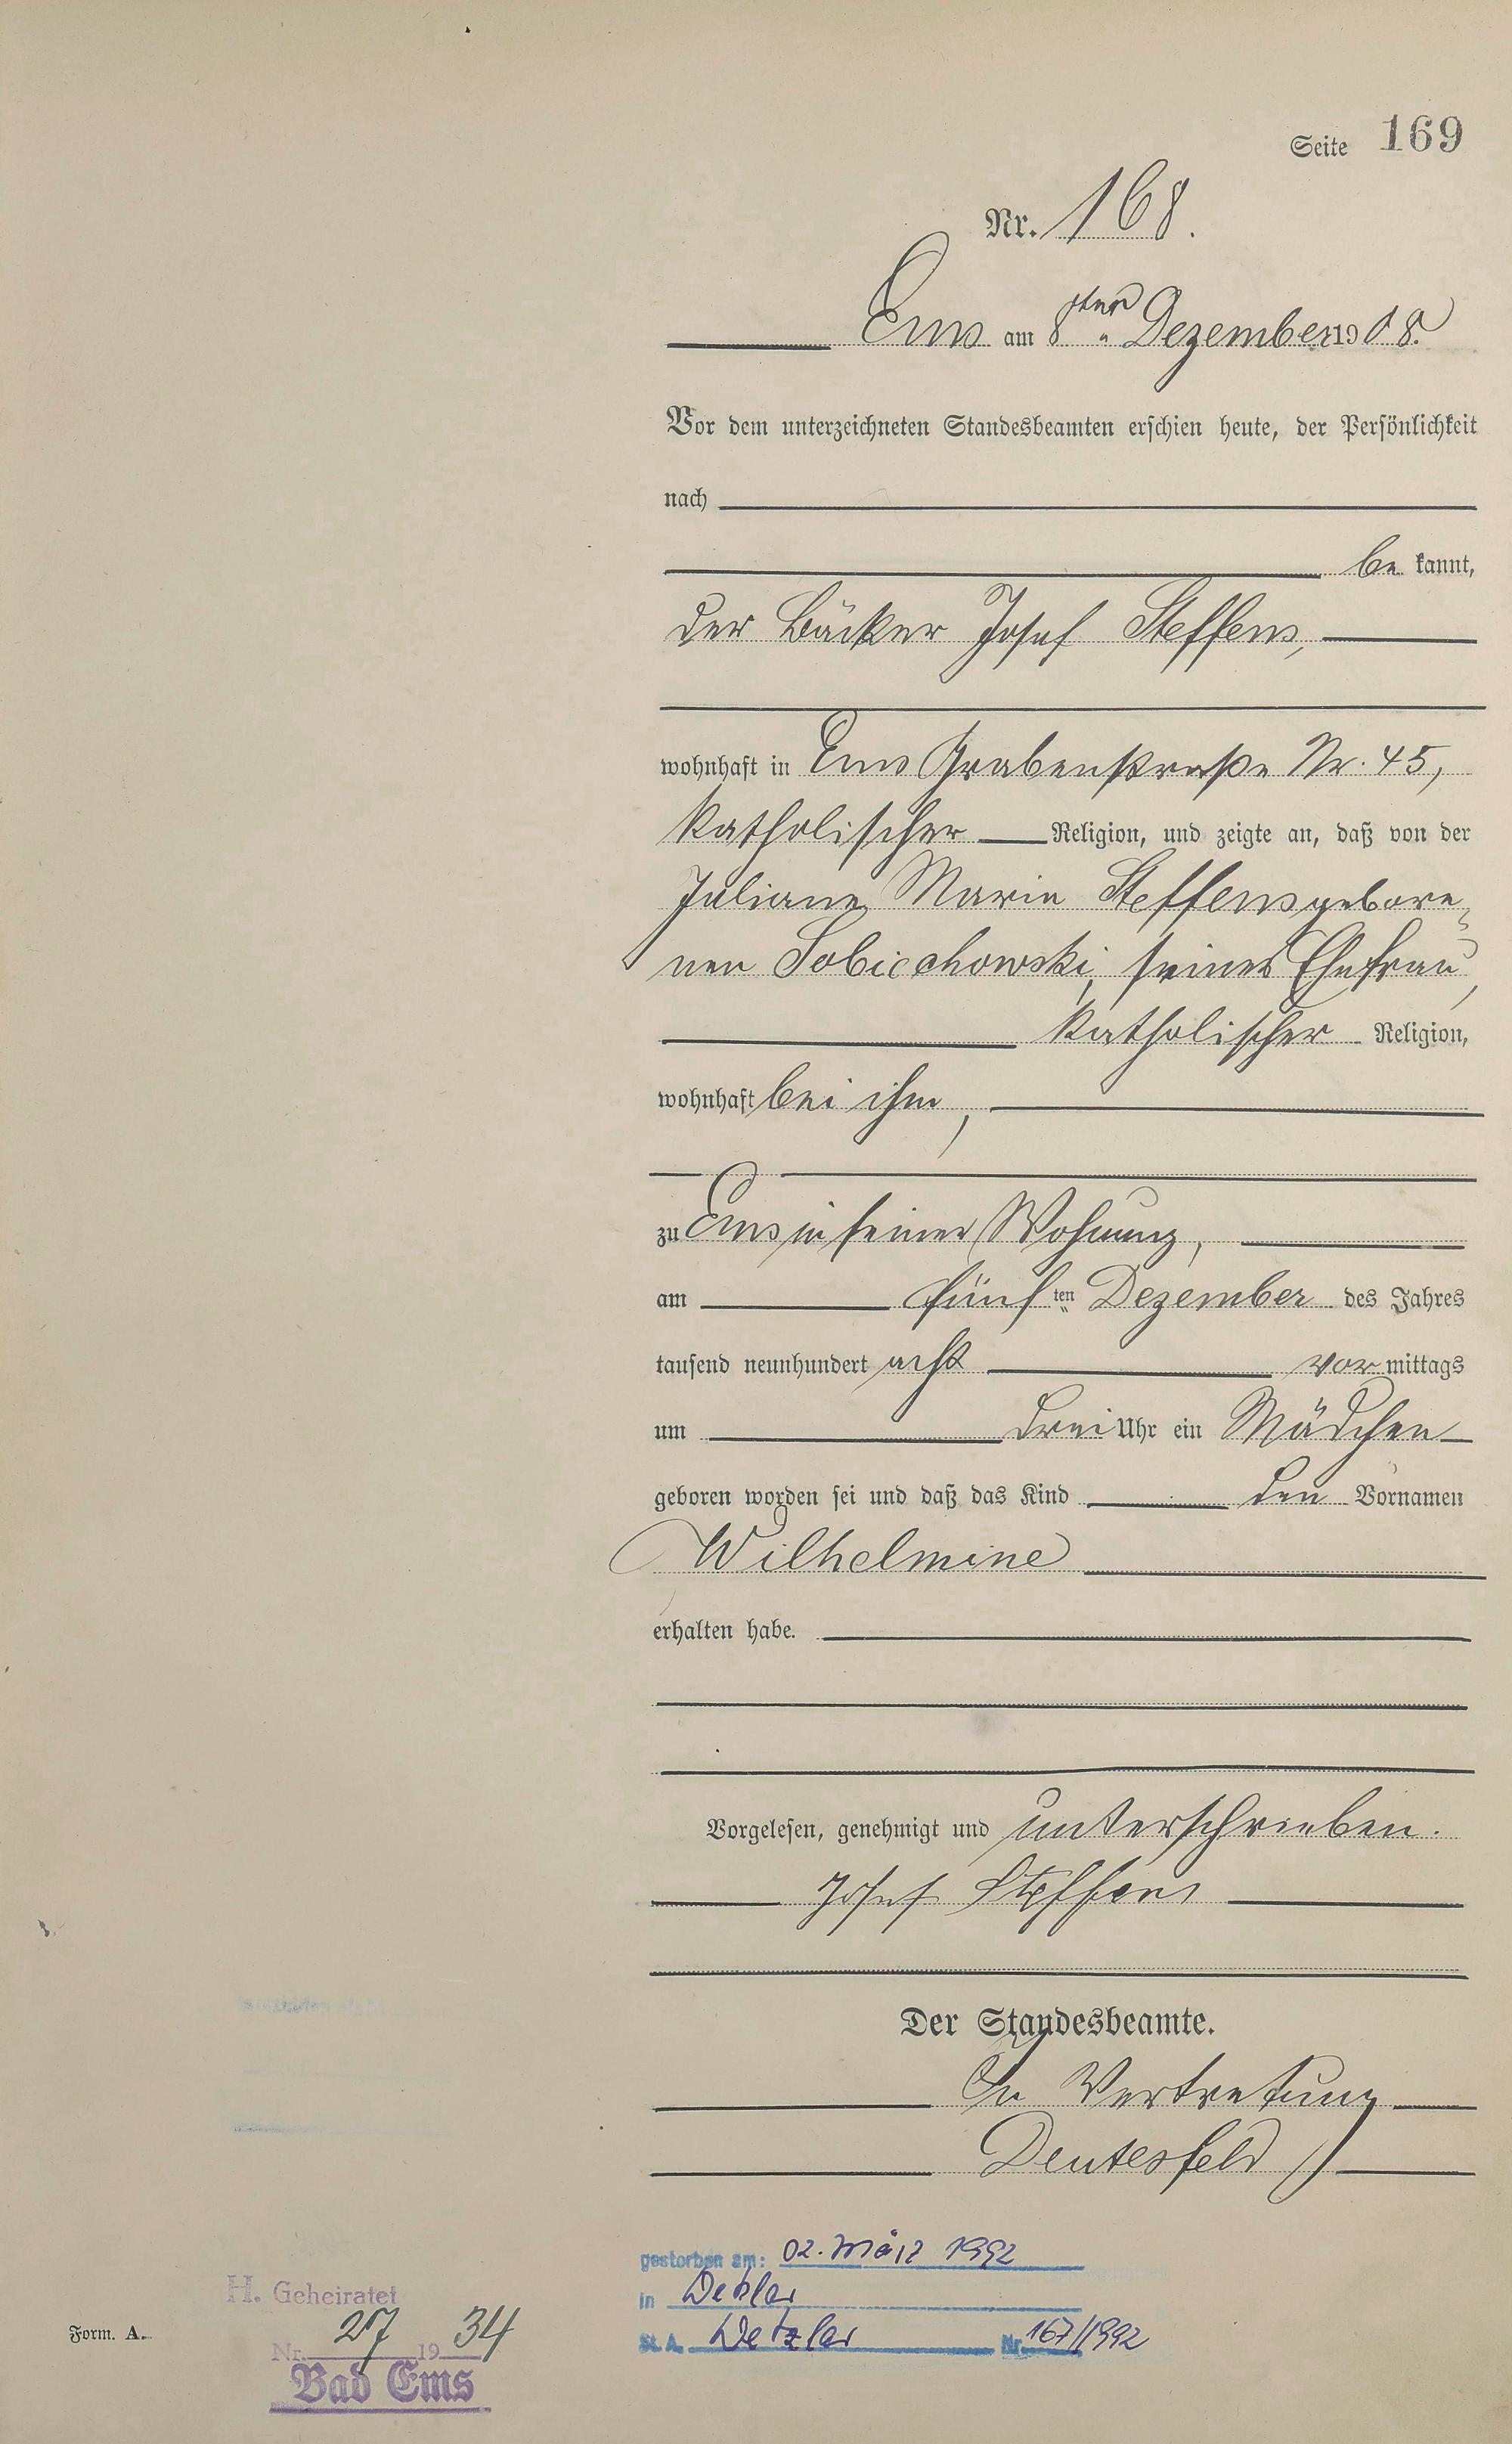 Seite 169
Nr. 168.
Ems am 8ten Dezember 1908.
Vor dem unterzeichneten Standesbeamten erschien heute, der Persönlichkeit
nach
be kannt,
der Bäcker Josef Steffens,
wohnhaft in Ems Grabenstraße Nr. 45,
katholischer Religion, und zeigte an, daß von der
Juliane Maria Steffens gebore-
nen Sobiechowski, seiner Ehefrau,
katholischer Religion,
wohnhaft bei ihm,
zu Ems in seiner Wohnung,
am fünf ten Dezember des Jahres
tausend neunhundert acht vor mittags
um drei Uhr ein Mädchen
geboren worden sei und daß das Kind den Vornamen
Wilhelmine
erhalten habe.
Vorgelesen, genehmigt und unterschrieben.
Josef Steffens
Der Standesbeamte.
In Vertretung
Deutesfeld
gestorben am: 02. März 1992
in Wetzlar
St. A. Wetzlar Nr. 167/1992
H. Geheiratet
Nr. 27 1934
Bad Ems
Form. A.